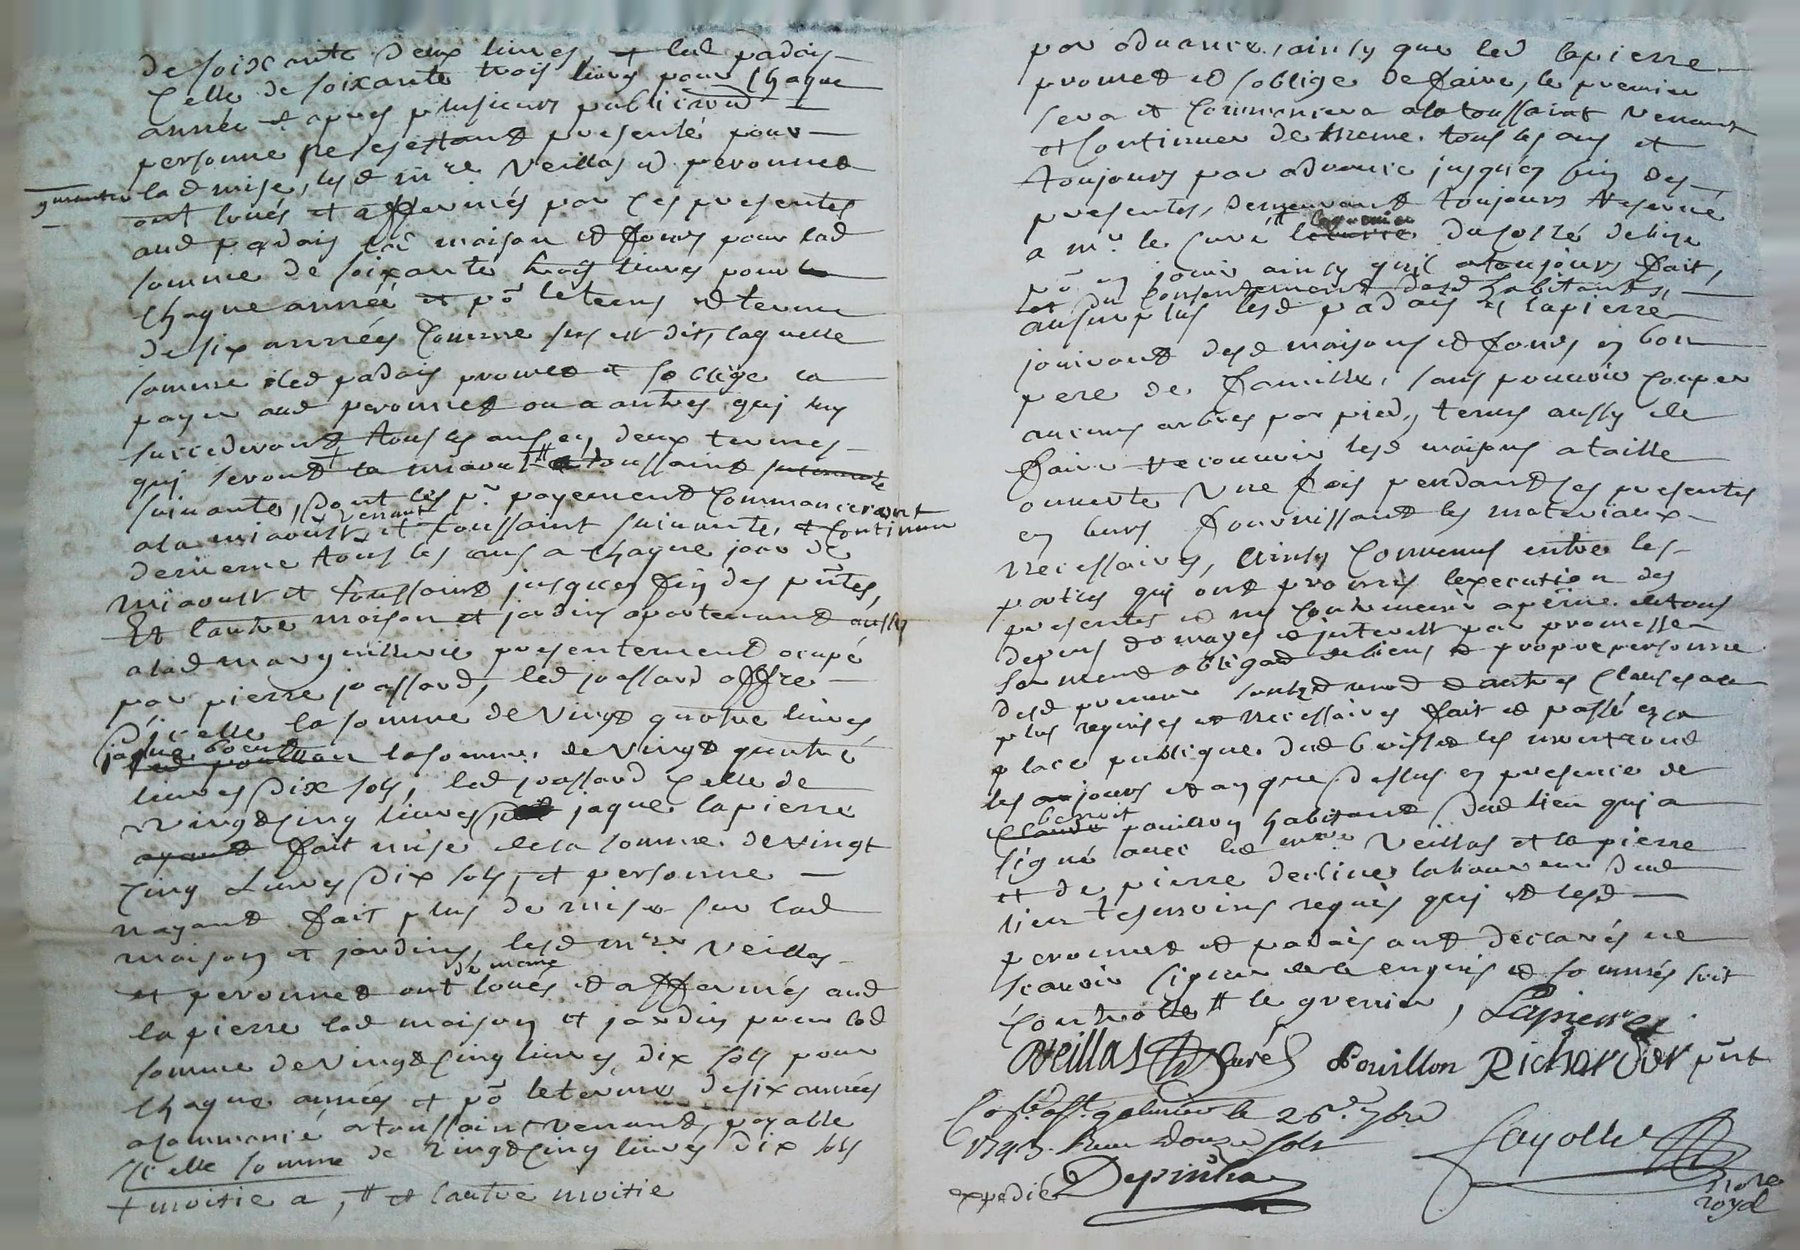 de soixante deux livres, et led padais
celle de soixante trois livres pour chaque
année et apres plusieurs publicaõns
personne ne sejettant presenté pour
lad mise, lesd mre Veillas et peronnet
ont loués et affermés par ces presentes
aud padais lad maison et fours pour lad
somme de soixante trois livres pour
chaque année et po le tems et terme
de six années comme sus est dit, laquelle
somme led padais promet et soblige la
payer aud peronnet ou a autres qui luy
succederont tous les ans en deux termes
qui seront la miaout et toussaint
suivante, dont les pr payement commanceront
venant
a la miaoust et toussaint suivante, et continuer
de meme tous les ans a chaque jour de
miaoust et toussaint jusques fin des pntes,
Et lautre maison et jardin apartenant aussy
a lad marguillerie presentement ocupé
par pierre joassard, led joassard offre
dicelle la somme de vingt quatre livres
la somme de vingt quatre
livres dix sols, led joassard celle de
vingt cinq livres jaque lapierre
ayant fait mise de la somme de vingt
cinq livres dix sols, et personne
nayant fait plus de mise sur lad
maison et jardin, lesd mre Veillas
de meme
et peronnet ont loués et affermés aud
lapierre lad maison et jardin pour lad
somme de vingt cinq livres dix sols pour
chaque années et po le terme de six années
a commancé a toussaint venant, payable
icelle somme de vingt cinq livres dix sols
+ moitie a, # et lautre moitie
par advance, ainsy que led lapierre
promet et soblige de faire, le premier
sera et commencera a la toussaint venant
et continuer de meme tous les ans et
toujours par advance jusques fin des
presentes, demeurant toujours reservé
a mr le curé du costé de bize
po en jouir ainsy quil a toujours fait,
du consentement desd habitants,
au surplus lesd padais et lapierre
jouiront desd maisons et fours en bon
pere de famille, sans pouvoir couper
aucuns arbres par pied, tenus aussy de
faire recouvrir lesd maisons a taille
ouverte une fois pendant ces presentes
en leurs fournissant les materiaux
necessaires, Ainsy convenus entre les
parties qui ont promis lexecution des
presentes et ny contrevenir a peine de tous
depens domages et interest par promesse
serment obligaõ de biens et propre personne
desd preneur et autres clauses au
plus requises et necessaires fait et passé en la
place publique dud
les jours et an que dessus en presence de
benoit
pouillon habitant dud lieu qui a
signé avec led mre Veillas et lapierre
et de pierre declines laboureur dud
lieu tesmoins requis qui et lesd
peronnet et padais ont declarés ne
scavoir signer de ce enquis et sommés soit
controllé # le grenier, Lapierre
Veillas Curé Pouillon Richardier pnt
le 26e 7bre
Rece douze sols
Fayolle
expedié Depinha
nore
royal